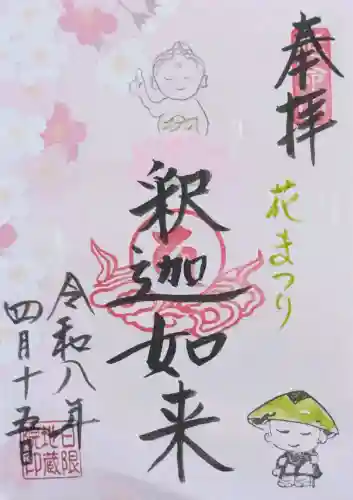 奉拝
花まつり
釈迦如来
令和八年
四月十五日
日限
地蔵
院印